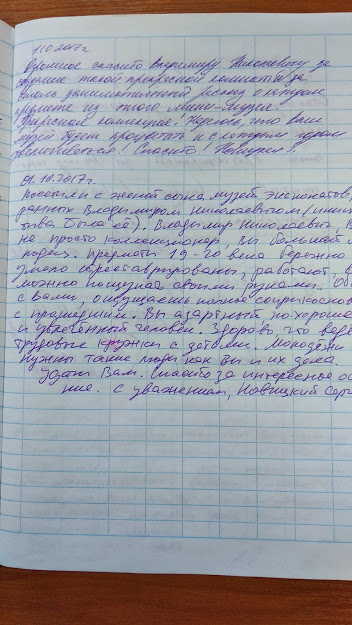 1.10.2017г
Огромное спасибо Владимиру Николаевичу за
создание такой прекрасной коллекции и за
столь занимательный рассказ о каждом
предмете из этого мини-музея.
Прекрасная коллекция! Надеюсь что Ваш
музей будет процветать и с каждым годом
увеличиваться! Спасибо!
01.10.2017г.
Посетили с женой сына музей экспонатов,
ранных Владимиром Николаевичом (иници
тива была её). Владимир Николаевич, В
не просто коллекционер, вы большой м
предметы 19-го века бережно
умело отреставрированы, работают, в
можно пощупать своими руками. Об
с Вами, ощущаешь полное соприкоснов
с прошедшим. Вы азартный, по хороше
и увлечённый человек. Здорово что вед
трудовые кружки с детьми. Молодёжи
нужны такие люди как вы и их дела.
Удачи Вам. Спасибо за интересное об
ние. с уважением, Новицкий Серг